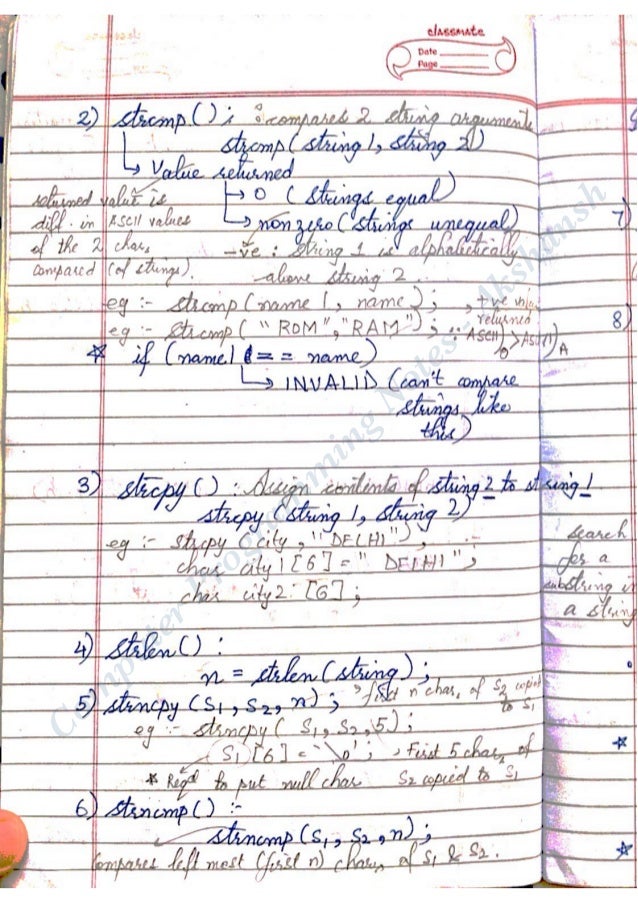 classmate
Date
Page
2) strcmp() : compares 2 string arguments
strcmp(string 1, string 2)
↳ Value returned
↳ 0 (strings equal)
↳ nonzero (strings unequal)
returned value is
diff. in ASCII values
of the 2 chars
compared (of strings).
-ve : String 1 is alphabetically
above string 2.
eg :- strcmp(name 1, name);
eg :- strcmp("ROM", "RAM"); , +ve value
returned
∵ ASCII)O > ASCII)A
* if (name1 == name)
↳ INVALID (can't compare
strings like
this)
3) strcpy() : Assign contents of string 2 to string 1
strcpy(string 1, string 2)
eg :- strcpy(city, "DELHI");
char city1[6] = "DELHI";
char city2 [6];
4) strlen() :
n = strlen(string);
5) strncpy(S1, S2, n); first n chars of S2 copied
to S1
eg :- strncpy(S1, S2, 5);
S1[6] = '\0'; , First 5 chars of
S2 copied to S1
* Reqd to put null char
6) strncmp() :-
strncmp(S1, S2, n);
Compares left most (first n) chars of S1 & S2.
7)
8)
search
for a
substring in
a string
Computer Programming Notes - Akshansh